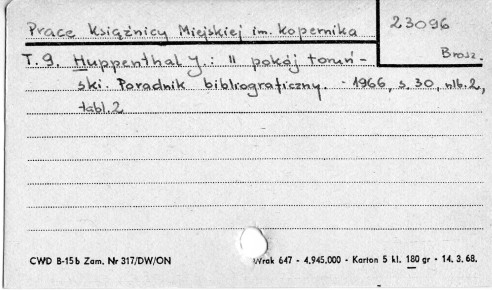 Prace Książnicy Miejskiej im. Kopernika
23096
Brosz.
T.9. Huppenthal J.: II pokój toruń-
ski. Poradnik bibliograficzny. - 1966, s. 30, nlb. 2,
tabl. 2
CWD B-15b Zam. Nr 317/DW/ON
Wrak 647 - 4.945.000 - Karton 5 kl. 180 gr - 14. 3. 68.